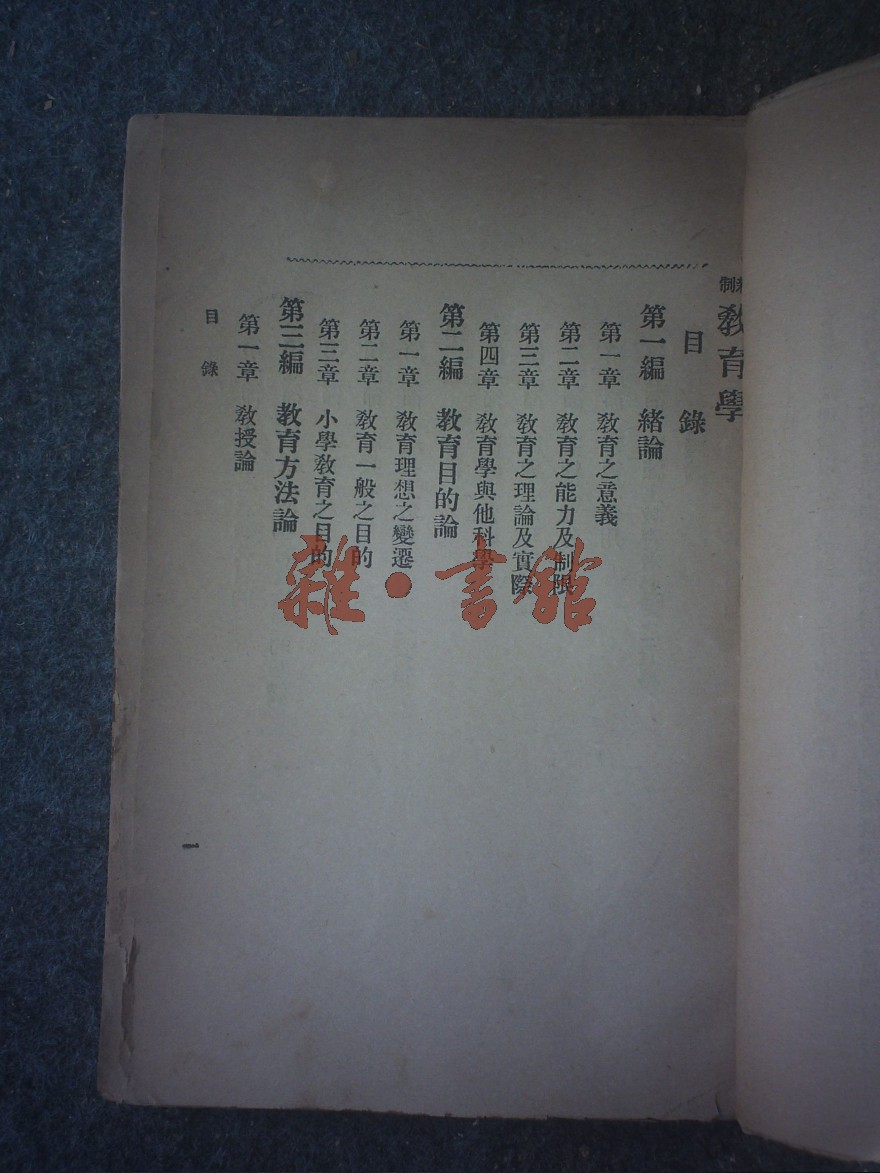 新制
教育學
目錄
第一編 緒論
第一章 教育之意義
第二章 教育之能力及制限
第三章 教育之理論及實際
第四章 教育學與他科學
第二編 教育目的論
第一章 教育理想之變遷
第二章 教育一般之目的
第三章 小學教育之目的
第三編 教育方法論
第一章 教授論
目錄
一
雜·書館